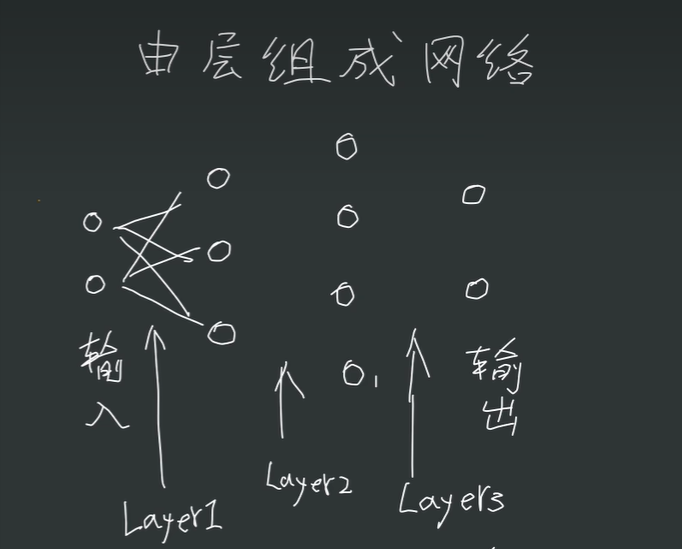 由层组成网络
输入
输出
Layer1
Layer2
Layer3